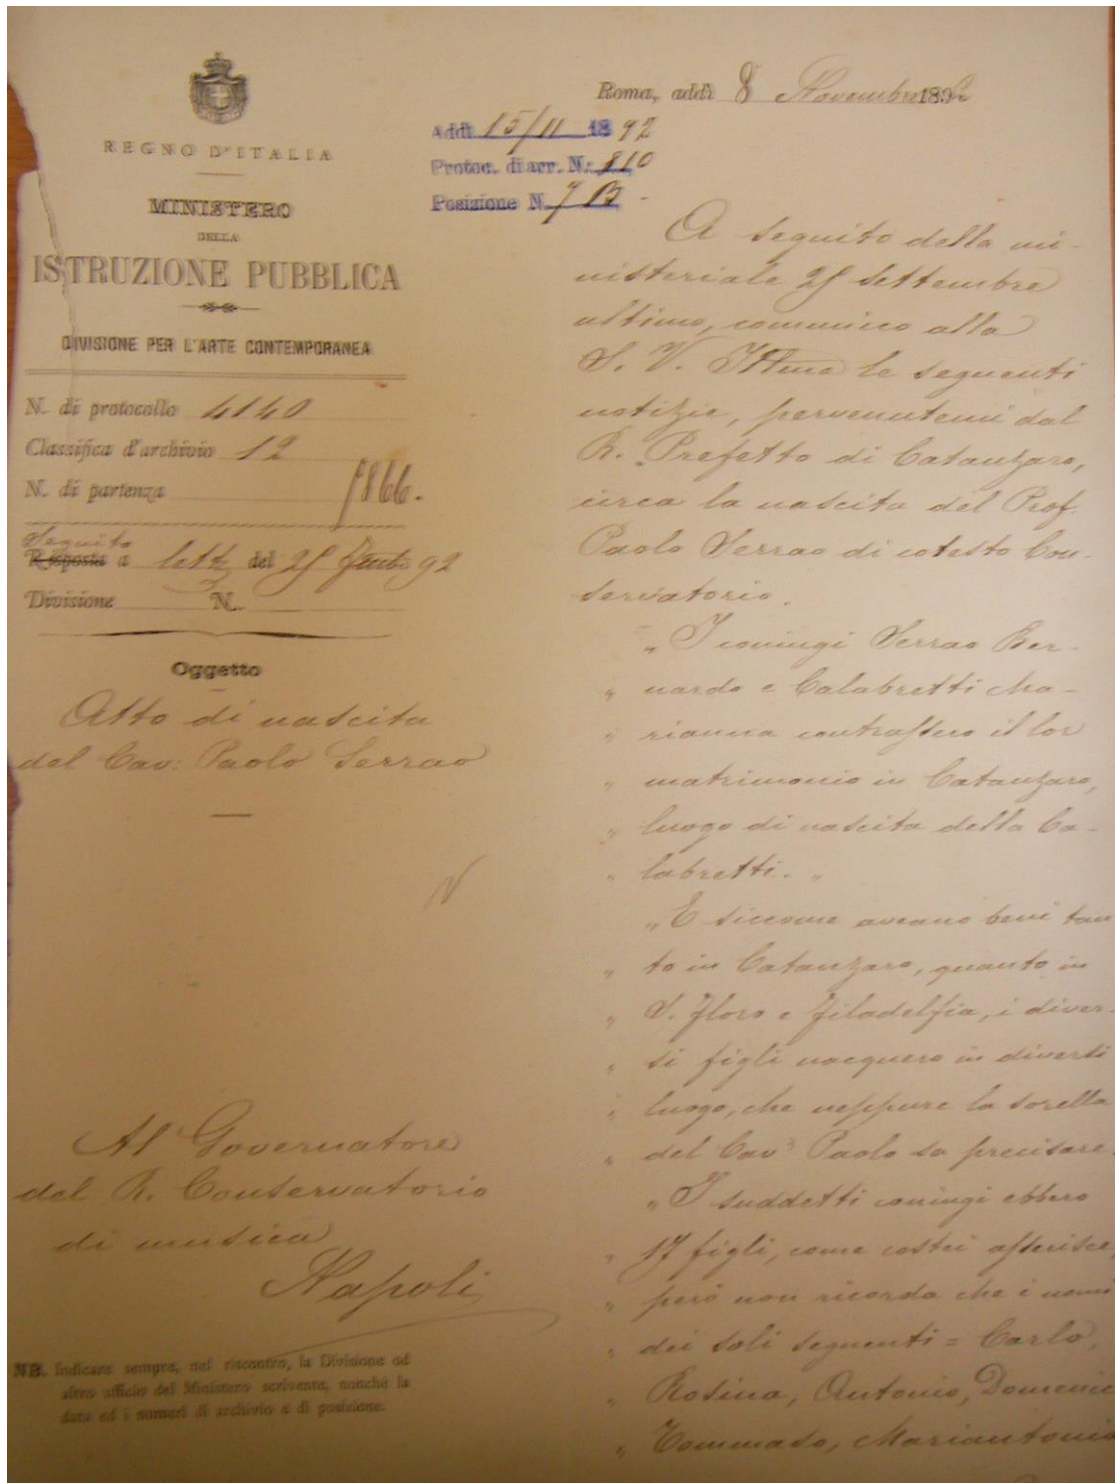 REGNO D'ITALIA
MINISTERO
DELLA
ISTRUZIONE PUBBLICA
DIVISIONE PER L'ARTE CONTEMPORANEA
N. di protocollo 4140
Classifica d'archivio 12
N. di partenza 7866.
Seguito
Risposta a lett del 25 92
Divisione N.
Oggetto
Atto di nascita
del Cav: Paolo Serrao
Al Governatore
del R. Conservatorio
di musica
Napoli
NB. Indicare sempre, nel riscontro, la Divisione od
altro ufficio del Ministero scrivente, nonchè la
data ed i numeri di archivio e di posizione.
Roma, addì 8 Novembre 1892
Addì 15/11 1892
Protoc. di arr. N. 810
Posizione N. 7 B
A seguito della mi-
nisteriale 25 settembre
ultimo, comunico alla
S. V. Illma le seguenti
notizie, pervenutemi dal
R. Prefetto di Catanzaro,
circa la nascita del Prof.
Paolo Serrao di cotesto Con-
servatorio.
„ I coniugi Serrao Ber-
„ nardo e Calabretti Ma-
„ rianna contrassero il lor
„ matrimonio in Catanzaro,
„ luogo di nascita della Ca-
„ labretti. „
„ E siccome aveano beni tan
„ to in Catanzaro, quanto in
„ S. Floro e Filadelfia, i diver-
„ si figli nacquero in diversi
„ luogo, che neppure la sorella
„ del Cav: Paolo sa precisare.
„ I suddetti coniugi ebbero
„ 17 figli, come costei asserisce,
„ però non ricorda che i nomi
„ dei soli seguenti = Carlo,
„ Rosina, Antonio, Domenic
„ Tommaso, Mariantonia